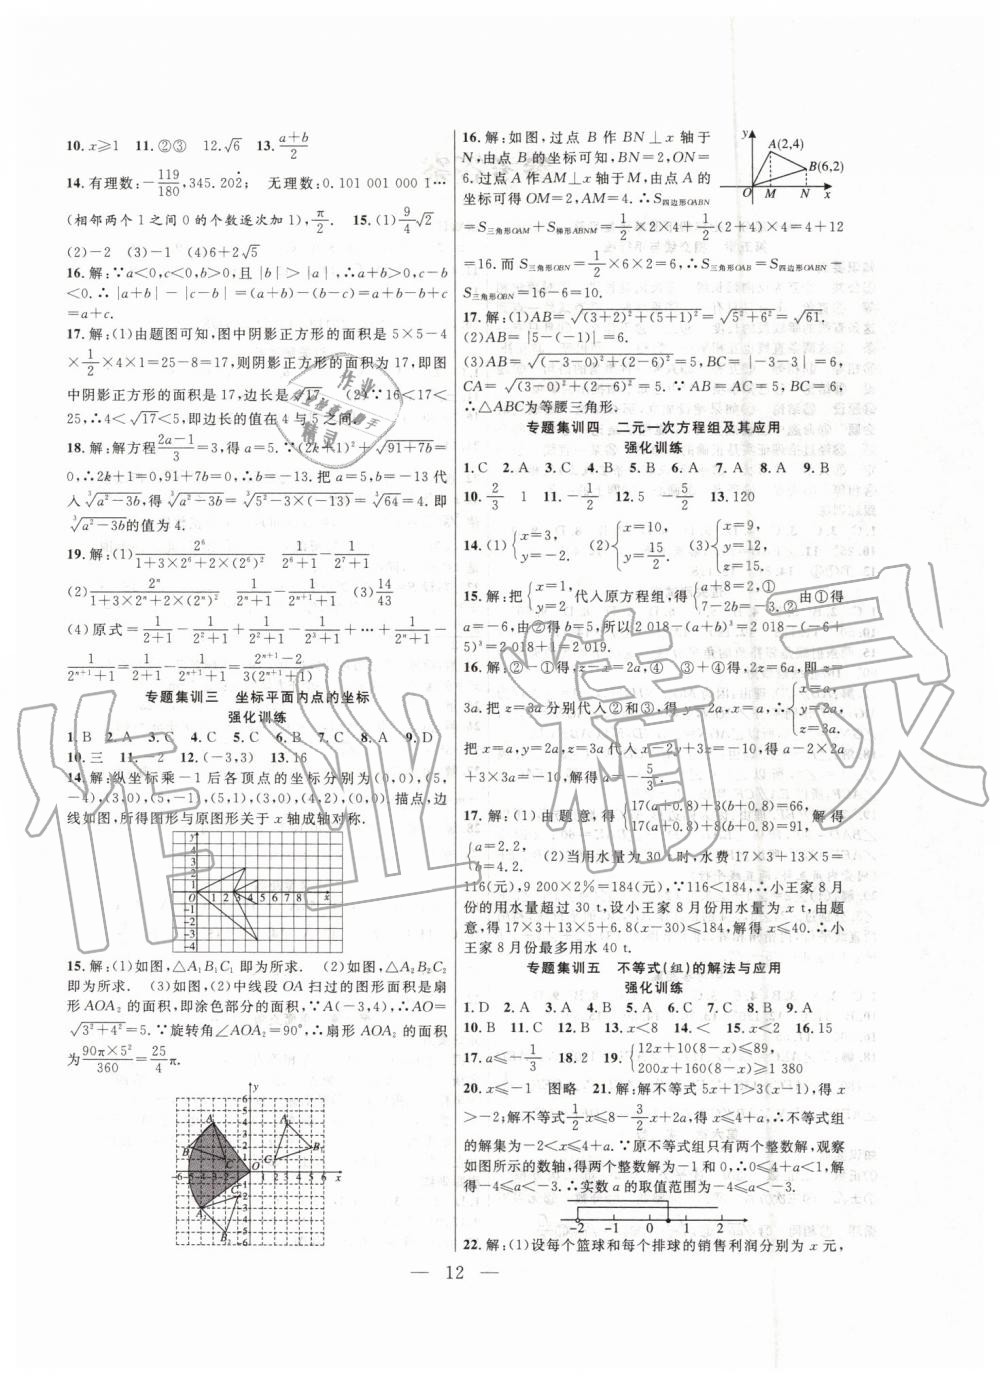 10. x⩾1　11. ②③　12. √6　13. (a+b)/2
14. 有理数:-119/180,345.202̇;　无理数:0.101 001 000 1…
(相邻两个 1 之间 0 的个数逐次加 1),π/2.　15. (1) 9/4 √2
(2)-2　(3)-1　(4)6+2√5
16. 解:∵a<0,c<0,b>0,且|b|>|a|,∴a+b>0,c-b
<0.∴|a+b|-|c-b|=(a+b)-(b-c)=a+b-b+c
=a+c.
17. 解:(1)由题图可知,图中阴影正方形的面积是 5×5-4
×1/2×4×1=25-8=17,则阴影正方形的面积为 17,即图
中阴影正方形的面积是 17,边长是√17　(2)∵16<17<
25,∴4<√17<5,即边长的值在 4 与 5 之间.
18. 解:解方程(2a-1)/3=3,得 a=5.∵(2k+1)²+√(91+7b)=
0,∴2k+1=0,91+7b=0.∴b=-13.把 a=5,b=-13 代
入∛(a²-3b),得∛(a²-3b)=∛(5²-3×(-13))=∛64=4.即
∛(a²-3b)的值为 4.
19. 解:(1) 2⁶/(1+3×2⁶+2×(2⁶)²)　1/(2⁶+1)-1/(2⁷+1)
(2) 2ⁿ/(1+3×2ⁿ+2×(2ⁿ)²)　1/(2ⁿ+1)-1/(2ⁿ⁺¹+1)　(3) 14/43
(4)原式=1/(2+1)-1/(2²+1)+1/(2²+1)-1/(2³+1)+…+1/(2ⁿ+1)-
1/(2ⁿ⁺¹+1)=1/(2+1)-1/(2ⁿ⁺¹+1)=(2ⁿ⁺¹-2)/(3(2ⁿ⁺¹+1))
专题集训三　坐标平面内点的坐标
强化训练
1. B　2. A　3. C　4. C　5. C　6. B　7. C　8. A　9. D
10. 三　11. -2　12. (-3,3)　13. 16
14. 解:纵坐标乘-1 后各顶点的坐标分别为(0,0),(5,
-4),(3,0),(5,-1),(5,1),(3,0),(4,2),(0,0).描点,边
线如图,所得图形与原图形关于 x 轴成轴对称.
y
4
3
2
1
O 1 2 3 4 5 6 7 8 x
-1
-2
-3
-4
15. 解:(1)如图,△A₁B₁C₁ 即为所求.　(2)如图,△A₂B₂C₂
即为所求.　(3)如图,(2)中线段 OA 扫过的图形面积是扇
形 AOA₂ 的面积,即涂色部分的面积,∵A(-3,4),∴AO=
√(3²+4²)=5.∵旋转角∠AOA₂=90°,∴扇形 AOA₂ 的面积
为(90π×5²)/360=25/4 π.
y
6
5
4
3
2
1
A A₁ B B₁ C C₁ O
-6 -5 -4 -3 -2 1 2 3 4 5 6 x
A₂ B₂ C₂
-2
-3
-4
-5
-6
16. 解:如图,过点 B 作 BN⊥x 轴于
N,由点 B 的坐标可知,BN=2,ON=
6.过点 A 作 AM⊥x 轴于 M,由点 A 的
坐标可得 OM=2,AM=4.∴S四边形OABN
y A(2,4) B(6,2) O M N x
=S三角形OAM+S梯形ABNM=1/2×2×4+1/2(2+4)×4=4+12
=16.而 S三角形OBN=1/2×6×2=6.∴S三角形OAB=S四边形OABN-
S三角形OBN=16-6=10.
17. 解:(1)AB=√((3+2)²+(5+1)²)=√(5²+6²)=√61.
(2)AB=|5-(-1)|=6.
(3)AB=√((-3-0)²+(2-6)²)=5,BC=|-3-3|=6,
CA=√((3-0)²+(2-6)²)=5.∵AB=AC=5,BC=6,
∴△ABC为等腰三角形.
专题集训四　二元一次方程组及其应用
强化训练
1. C　2. A　3. C　4. B　5. B　6. A　7. A　8. A　9. B
10. 2/3　1　11. -1/2　12. 5　-5/2　13. 120
14. (1){x=3, y=-2.　(2){x=10, y=15/2.　(3){x=9, y=12, z=15.
15. 解:把{x=1, y=2 代入原方程组,得{a+8=2,① 7-2b=-3.② 由①得
a=-6,由②得 b=5,所以 2 018-(a+b)³=2 018-(-6+
5)³=2 018+1=2 019.
16. 解:②-①得,x-z=-2a④,③-④得,2z=6a,即 z=
3a.把 z=3a 分别代入②和③,得 y=2a,x=a,∴{x=a, y=2a, z=3a.
把 x=a,y=2a,z=3a 代入 x-2y+3z=-10,得 a-2×2a
+3×3a=-10,解得 a=-5/3.
17. 解:(1)由题意,得{17(a+0.8)+3(b+0.8)=66, 17(a+0.8)+8(b+0.8)=91, 解得
{a=2.2, b=4.2.　(2)当用水量为 30 t 时,水费 17×3+13×5=
116(元),9 200×2%=184(元),∵116<184,∴小王家 8 月
份的用水量超过 30 t,设小王家 8 月份用水量为 x t,由题
意,得 17×3+13×5+6.8(x-30)⩽184,解得 x⩽40.∴小
王家 8 月份最多用水 40 t.
专题集训五　不等式(组)的解法与应用
强化训练
1. D　2. A　3. C　4. B　5. A　6. C　7. B　8. B　9. A
10. B　11. C　12. B　13. x<8　14. <　15. x<2　16. 15
17. a⩽-1/3　18. 2　19. {12x+10(8-x)⩽89, 200x+160(8-x)⩾1 380
20. x⩽-1　图略　21. 解:解不等式 5x+1>3(x-1),得 x
>-2;解不等式1/2x⩽8-3/2x+2a,得 x⩽4+a.∴不等式组
的解集为-2<x⩽4+a.∵原不等式组只有两个整数解,观察
如图所示的数轴,得两个整数解为-1 和 0,∴0⩽4+a<1,解得
-4⩽a<-3.∴实数 a 的取值范围为-4⩽a<-3.
-2 -1 0 1 2
22. 解:(1)设每个篮球和每个排球的销售利润分别为 x 元,
— 12 —
作业精灵
作业
精灵